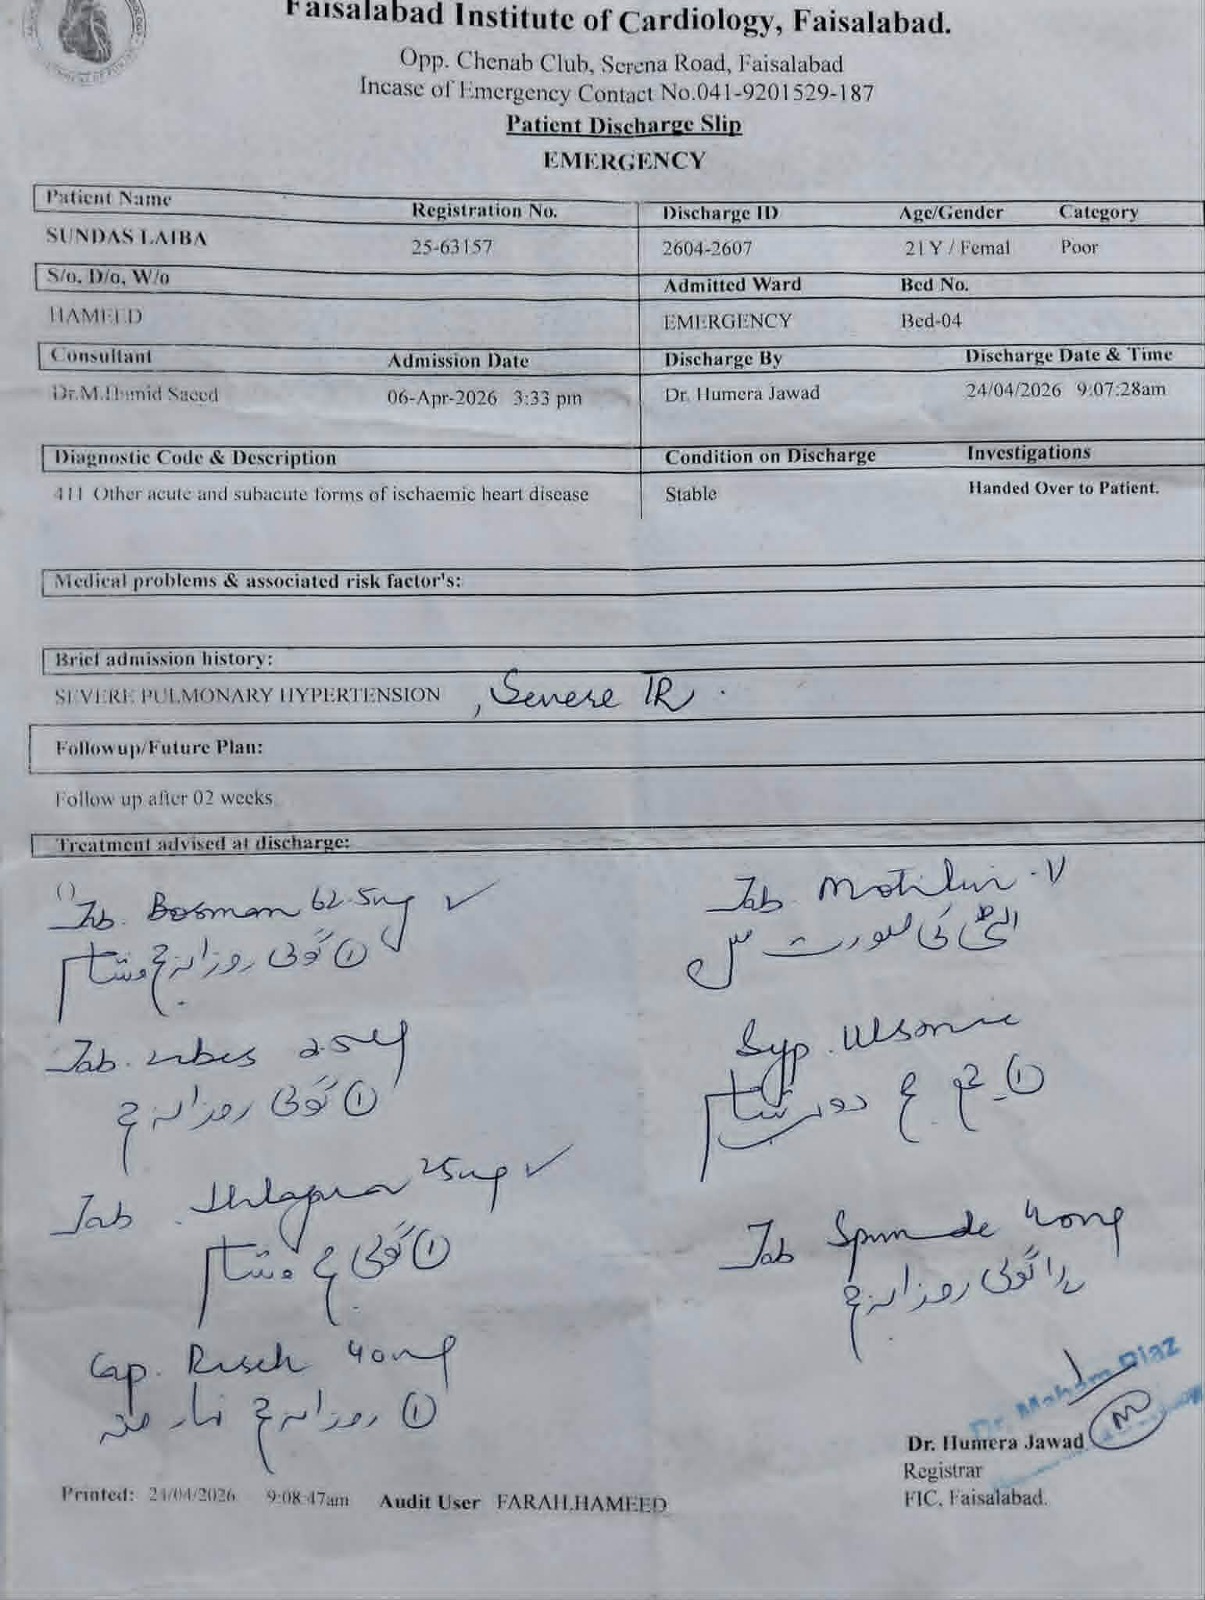 Faisalabad Institute of Cardiology, Faisalabad.
Opp. Chenab Club, Serena Road, Faisalabad
Incase of Emergency Contact No.041-9201529-187
Patient Discharge Slip
EMERGENCY
Patient Name Registration No. Discharge ID Age/Gender Category
SUNDAS LAIBA 25-63157 2604-2607 21 Y / Femal Poor
S/o, D/o, W/o Admitted Ward Bed No.
HAMEED EMERGENCY Bed-04
Consultant Admission Date Discharge By Discharge Date & Time
Dr.M.Hamid Saeed 06-Apr-2026 3:33 pm Dr. Humera Jawad 24/04/2026 9:07:28am
Diagnostic Code & Description Condition on Discharge Investigations
411 Other acute and subacute forms of ischaemic heart disease Stable Handed Over to Patient.
Medical problems & associated risk factor's:
Brief admission history:
SEVERE PULMONARY HYPERTENSION , Severe TR.
Followup/Future Plan:
Follow up after 02 weeks
Treatment advised at discharge:
Tab. Bosman 62.5mg
① گولی روزانہ صبح و شام
Tab.
① گولی روزانہ صبح
Tab 25mg
① گولی صبح و شام
Cap. Risek 40mg
① روزانہ صبح نہار منہ
Tab Motilium-V
الٹی کی صورت میں
Syp.
① چمچ صبح دوپہر شام
Tab 40mg
گولی روزانہ صبح
Dr. Humera Jawad
Registrar
FIC, Faisalabad.
Printed: 24/04/2026 9:08:47am Audit User FARAH.HAMEED